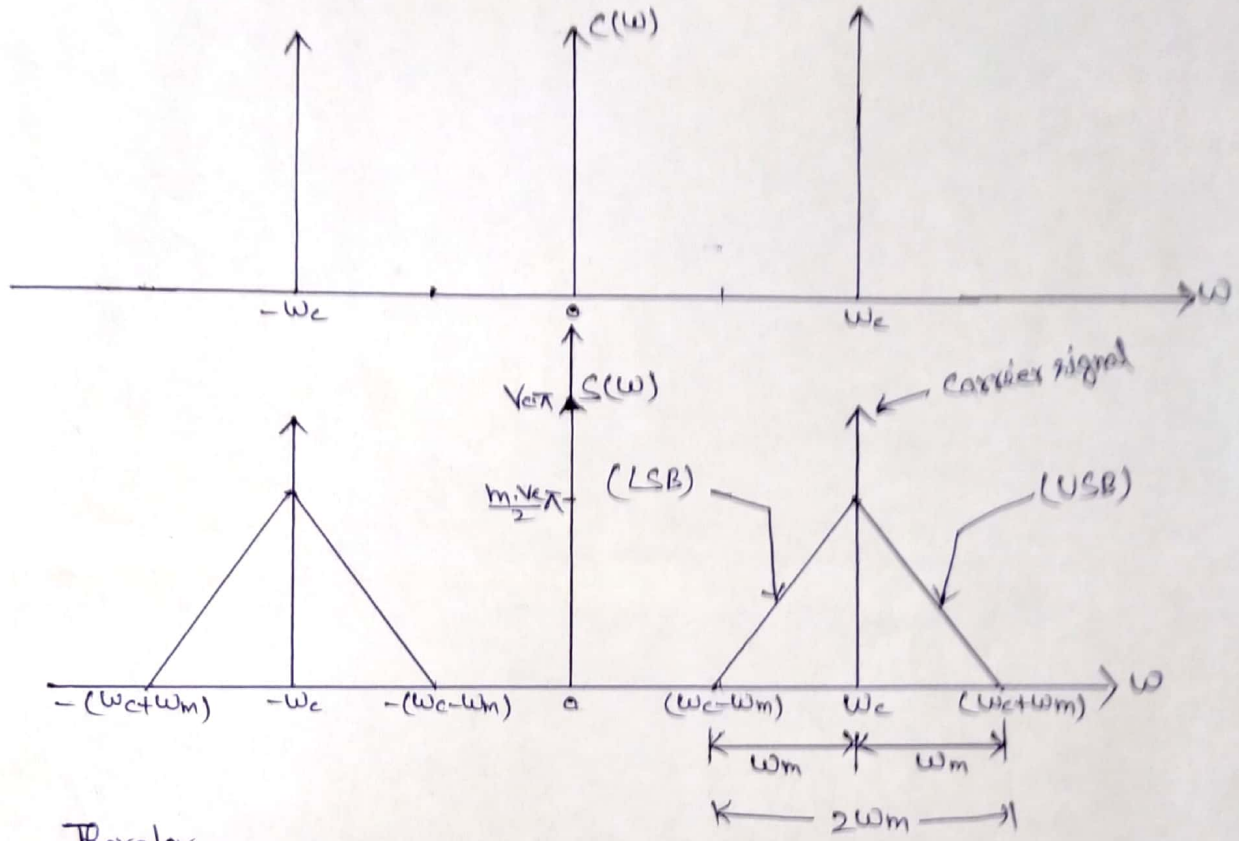 C(ω)
-ωc 0 ωc ω
Vcπ S(ω) carrier signal
m.Vc/2 π (LSB) (USB)
-(ωc+ωm) -ωc -(ωc-ωm) 0 (ωc-ωm) ωc (ωc+ωm) ω
ωm ωm
2ωm